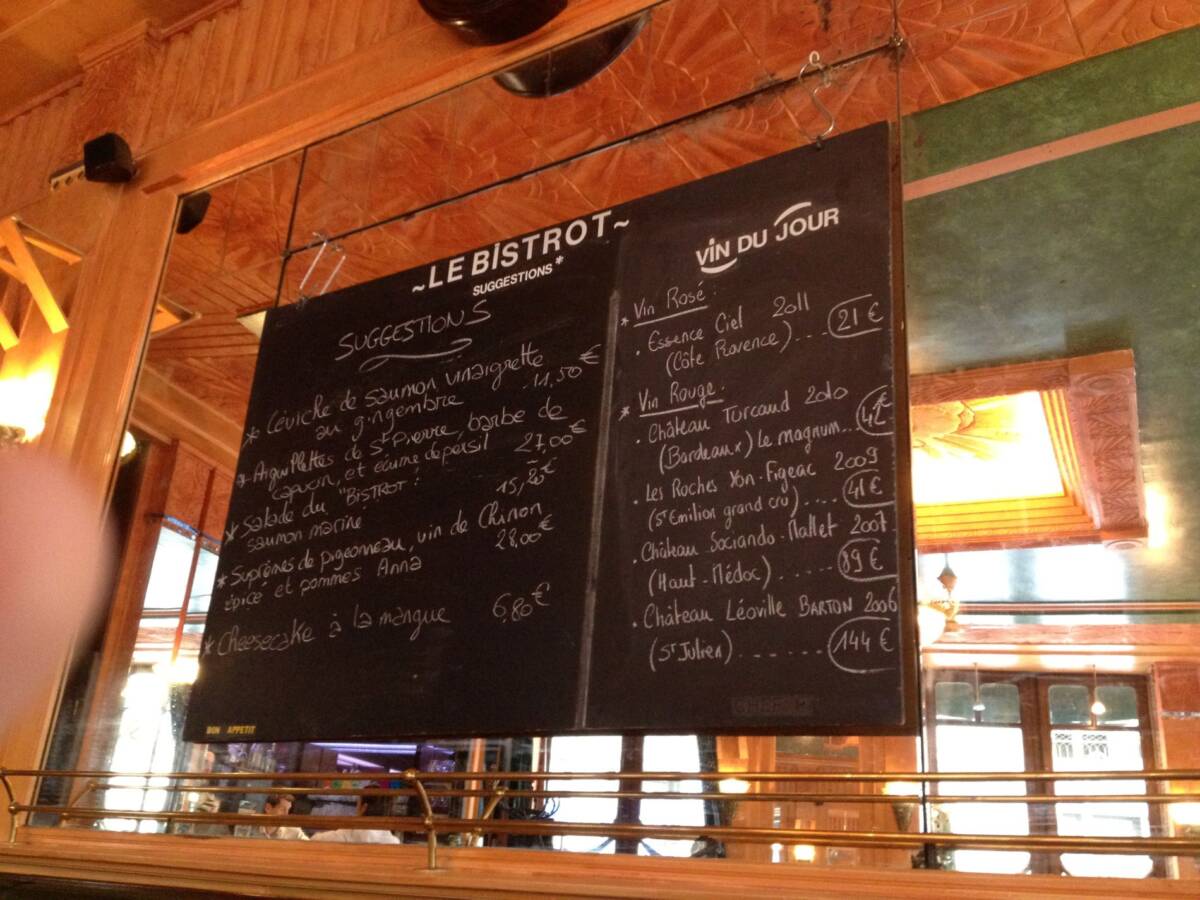 ~LE BISTROT~
SUGGESTIONS*
SUGGESTIONS
* Céviche de saumon vinaigrette
au gingembre .11,50€
* Aiguillettes de St Pierre, barbe de
capucin, et écume de persil 27,00€
* Salade du "BISTROT":
saumon mariné 15,20€
* Suprêmes de pigeonneau, vin de Chinon
épicé et pommes Anna 28,00€
* Cheesecake à la mangue 6,80€
BON APPETIT
VIN DU JOUR
* Vin Rosé:
. Essence Ciel 2011
(Côte Provence)... 21€
* Vin Rouge.
. Château Turcaud 2010
(Bordeaux) Le magnum... 42€
. Les Roches Yon-Figeac 2009
(St Emilion grand cru).... 41€
. Château Sociando-Mallet 2007
(Haut-Médoc)...... 89€
. Château Léoville BARTON 2006
(St Julien)...... 144€